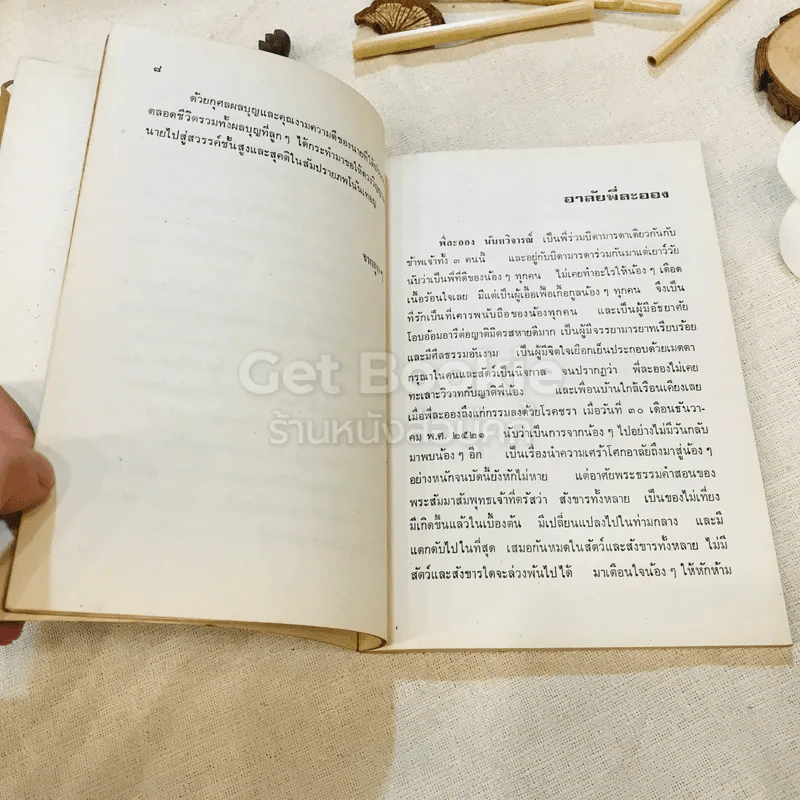 ๘
ด้วยกุศลผลบุญและคุณงามความดีของนายที่ได้
ตลอดชีวิตรวมทั้งผลบุญที่ลูก ๆ ได้กระทำมาขอให้ดวงวิญญาณ
นายไปสู่สวรรค์ชั้นสูงและสุคติในสัมปรายภพโน้นเทอญ
จากลูก ๆ
อาลัยพี่ละออง
พี่ละออง นันทวิจารณ์ เป็นพี่ร่วมบิดามารดาเดียวกันกับ
ข้าพเจ้าทั้ง ๓ คนนี้ และอยู่กับบิดามารดาร่วมกันมาแต่เยาว์วัย
นับว่าเป็นพี่ที่ดีของน้อง ๆ ทุกคน ไม่เคยทำอะไรให้น้อง ๆ เดือด
เนื้อร้อนใจเลย มีแต่เป็นผู้เอื้อเฟื้อเกื้อกูลน้อง ๆ ทุกคน จึงเป็น
ที่รักเป็นที่เคารพนับถือของน้องทุกคน และเป็นผู้มีอัธยาศัย
โอบอ้อมอารีต่อญาติมิตรสหายดีมาก เป็นผู้มีจรรยามารยาทเรียบร้อย
และมีศีลธรรมอันงาม เป็นผู้มีจิตใจเยือกเย็นประกอบด้วยเมตตา
กรุณาในคนและสัตว์เป็นนิจกาล จนปรากฏว่า พี่ละอองไม่เคย
ทะเลาะวิวาทกับญาติพี่น้อง และเพื่อนบ้านใกล้เรือนเคียงเลย
เมื่อพี่ละอองถึงแก่กรรมลงด้วยโรคชรา เมื่อวันที่ ๓๐ เดือนธันวา-
คม พ.ศ. ๒๕๒๑ นับว่าเป็นการจากน้อง ๆ ไปอย่างไม่มีวันกลับ
มาพบน้อง ๆ อีก เป็นเรื่องนำความเศร้าโศกอาลัยถึงมาสู่น้อง ๆ
อย่างหนักจนบัดนี้ยังหักไม่หาย แต่อาศัยพระธรรมคำสอนของ
พระสัมมาสัมพุทธเจ้าที่ตรัสว่า สังขารทั้งหลาย เป็นของไม่เที่ยง
มีเกิดขึ้นแล้วในเบื้องต้น มีเปลี่ยนแปลงไปในท่ามกลาง และมี
แตกดับไปในที่สุด เสมอกันหมดในสัตว์และสังขารทั้งหลาย ไม่มี
สัตว์และสังขารใดจะล่วงพ้นไปได้ มาเตือนใจน้อง ๆ ให้หักห้าม
Get Bookie
ร้านหนังสือมือ